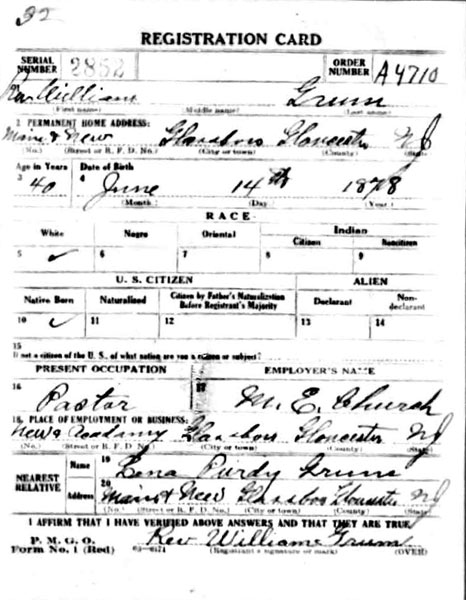 32
REGISTRATION CARD
SERIAL NUMBER 2852 ORDER NUMBER A4710
1 Rev William Grum
(First name) (Middle name) (Last name)
2 PERMANENT HOME ADDRESS:
Main & New Glassboro Gloucester NJ
(No.) (Street or R. F. D. No.) (City or town) (County) (State)
Age in Years Date of Birth
3 40 4 June 14th 1878
(Month) (Day) (Year)
RACE
White Negro Oriental Indian
Citizen Noncitizen
5 ✓ 6 7 8 9
U. S. CITIZEN ALIEN
Native Born Naturalized Citizen by Father's Naturalization Before Registrant's Majority Declarant Non-declarant
10 ✓ 11 12 13 14
15
If not a citizen of the U. S., of what nation are you a citizen or subject?
PRESENT OCCUPATION EMPLOYER'S NAME
16 Pastor 17 M. E. Church
18 PLACE OF EMPLOYMENT OR BUSINESS:
New & Academy Glassboro Gloucester NJ
(No.) (Street or R. F. D. No.) (City or town) (County) (State)
NEAREST RELATIVE Name 19 Lena Purdy Grum
Address 20 Main & New Glassboro Gloucester NJ
(No.) (Street or R. F. D. No.) (City or town) (County) (State)
I AFFIRM THAT I HAVE VERIFIED ABOVE ANSWERS AND THAT THEY ARE TRUE
P. M. G. O.
Form No. 1 (Red) 03-6171 Rev William Grum
(Registrant's signature or mark) (OVER)